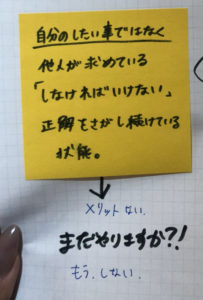 自分のしたい事ではなく
他人が求めている
「しなければいけない」
正解をさがし続けている
状態。
メリットない.
まだやりますか?!
もう、しない.